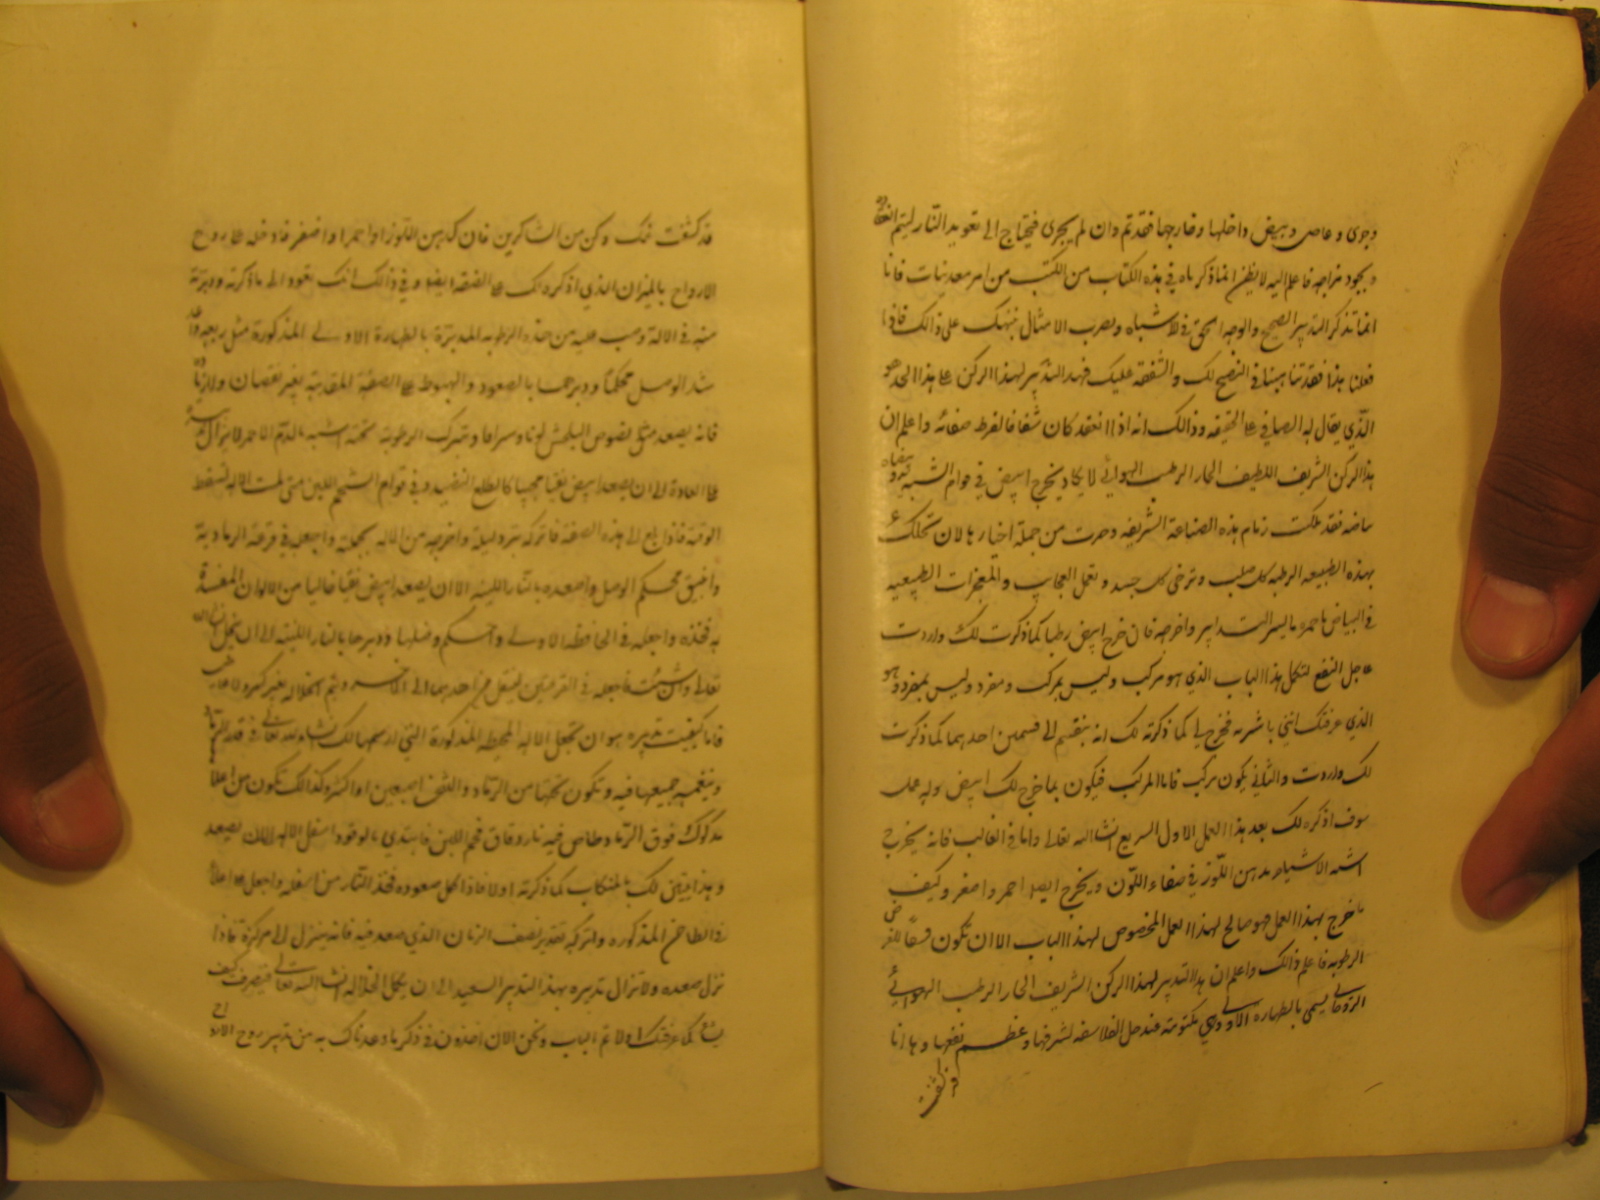 وجرى وغاص وبيض داخلها وخارجها فقد تم وان لم يجرى فيحتاج الى تعويد النار ليتم
وبجود مزاجه فاعلم اليه لا يظن انما ذكرناه في هذه الكتاب من الكتب من امر معدنيات فانا
انما نذكر التدبير الصحيح والوجه الحق في الاشباه ونضرب الامثال ننبهك على ذالك فاذا
فعلنا هذا فقد تناهينا في النصح لك والشفقة عليك فهذا التدبير لهذا الركن على هذا الحد هو
الذي يقال له الصافي على الحقيقه وذالك انه اذا انعقد كان شفافا لفرط صفائه واعلم ان
هذا الركن الشريف اللطيف الحار الرطب الهوائي لا يكاد يخرج ابيض في قوام الشب
فقد ملكت زمام هذه الصناعة الشريفه وصرت من جملة اخيارها لان تحلل
بهذه الطبيعه الرطبه كل صلب وترخى كل جسد وتعمل العجايب والمعجزات الطبيعيه
في البياض بايسر التدابير واخرجه فان خرج ابيض رطبا كما ذكرت لك واردت
عاجل النفع لتكمل هذا الباب الذي هو مركب وليس بمركب ومفرد وليس بمفرد وهو
الذي عرفتك انني باشرته فخرج لي كما ذكرته لك انه ينقسم الى قسمين احدهما كما ذكرت
لك واردت والثاني يكون مركب فاما المركب فيكون بما خرج لك ابيض وله عمل
سوف اذكره لك بعد هذا العمل الاول السريع انشاالله تعالى واما في الغالب فانه يخرج
اشبه الاشياء بدهن اللوز في صفاء اللون ويخرج ايضا احمر واصفر وكيف
ما خرج بهذا العمل فهو صالح لهذا العمل المخصوص لهذا الباب الا ان تكون
الرطوبه فاعلم ذالك واعلم ان هذا التدبير لهذا الركن الشريف الحار الرطب الهوائي
الروحاني يسمى بالطهارة الاولى وهي مكتومة عند جل الفلاسفه لشرفها وعظم نفعها وها انا
قد كشفت
قد كشفت لك وكن من الشاكرين فان كدهن اللوز او احمر او اصفر فادخله على روح
الارواح بالميزان الذي اذكره لك على الصفة ايضا وفي ذالك انك تعود الى ما ذكرته ودبرته
منه في الالة وصب عليه من هذه الرطوبه المدبرة بالطهارة الاولى المذكورة مثل ربعه
شد الوصل محكما ودبرهما بالصعود والهبوط على الصفة المقدمة بغير نقصان ولا زيادة
فانه يصعد مثل فصوص البلخش لونا وصرافا وتترك الرطوبة تحته اشبه بالدم الاحمر لا يزال
على العادة الى ان يصعد ابيض نقيا عجيبا كالطلع النضيد وفي قوام الشحم اللين متى ملت الالة لسقط
لوقته فاذا بلغ الى هذه الصفة فاتركه تبرد ليلة واخرجه من الالة بجملته واجعله في قرعة الرمادية
وانبيق محكم الوصل واصعده بالنار اللينة الا ان يصعد ابيض نقيا خاليا من الالوان المفسدة
به فخذه واجعله في الحافظة الاولى واحكم وصلها ودبرها بالنار اللينة الى ان ينحل انشاالله
تعالى وان شئت فاجعله في القرعتين لينقل من احدهما الى الاخر ويتم انحلاله بغير كدورة
فاما كيفيت تدبيره هو ان تجعل الالة المحيطه المذكورة التي ارسمها لك انشاء الله تعالى في قدر
وينغمر جميعها فيه وتكون تحتها من الرماد والثخن اصبعين او اكثر وكذالك تكون من اعلا
مدكوك فوق الرماد طاجن فيه نار دقاق فحم اللين فابتدي بالوقود اسفل الالة الى ان يصعد
وهذا يتبين لك بالمنكاب كما ذكرته اولا فاذا كمل صعوده فخذ النار من اسفله واجعل على اعلا
في الطاجن المذكوره ولتركه بقدر نصف الزمان الذي صعد فيه فانه ينزل الى مركزه فاذا
نزل صعده ولا تزال تدبره بهذا التدبير السعيد الى ان يكمل انحلاله انشا الله تعالى فيتصرف كيف
يشاء كما عرفتك اولا تم الباب ونحن الان اخذون في ذكر ما وعدناك به من تدبير روح الارواح